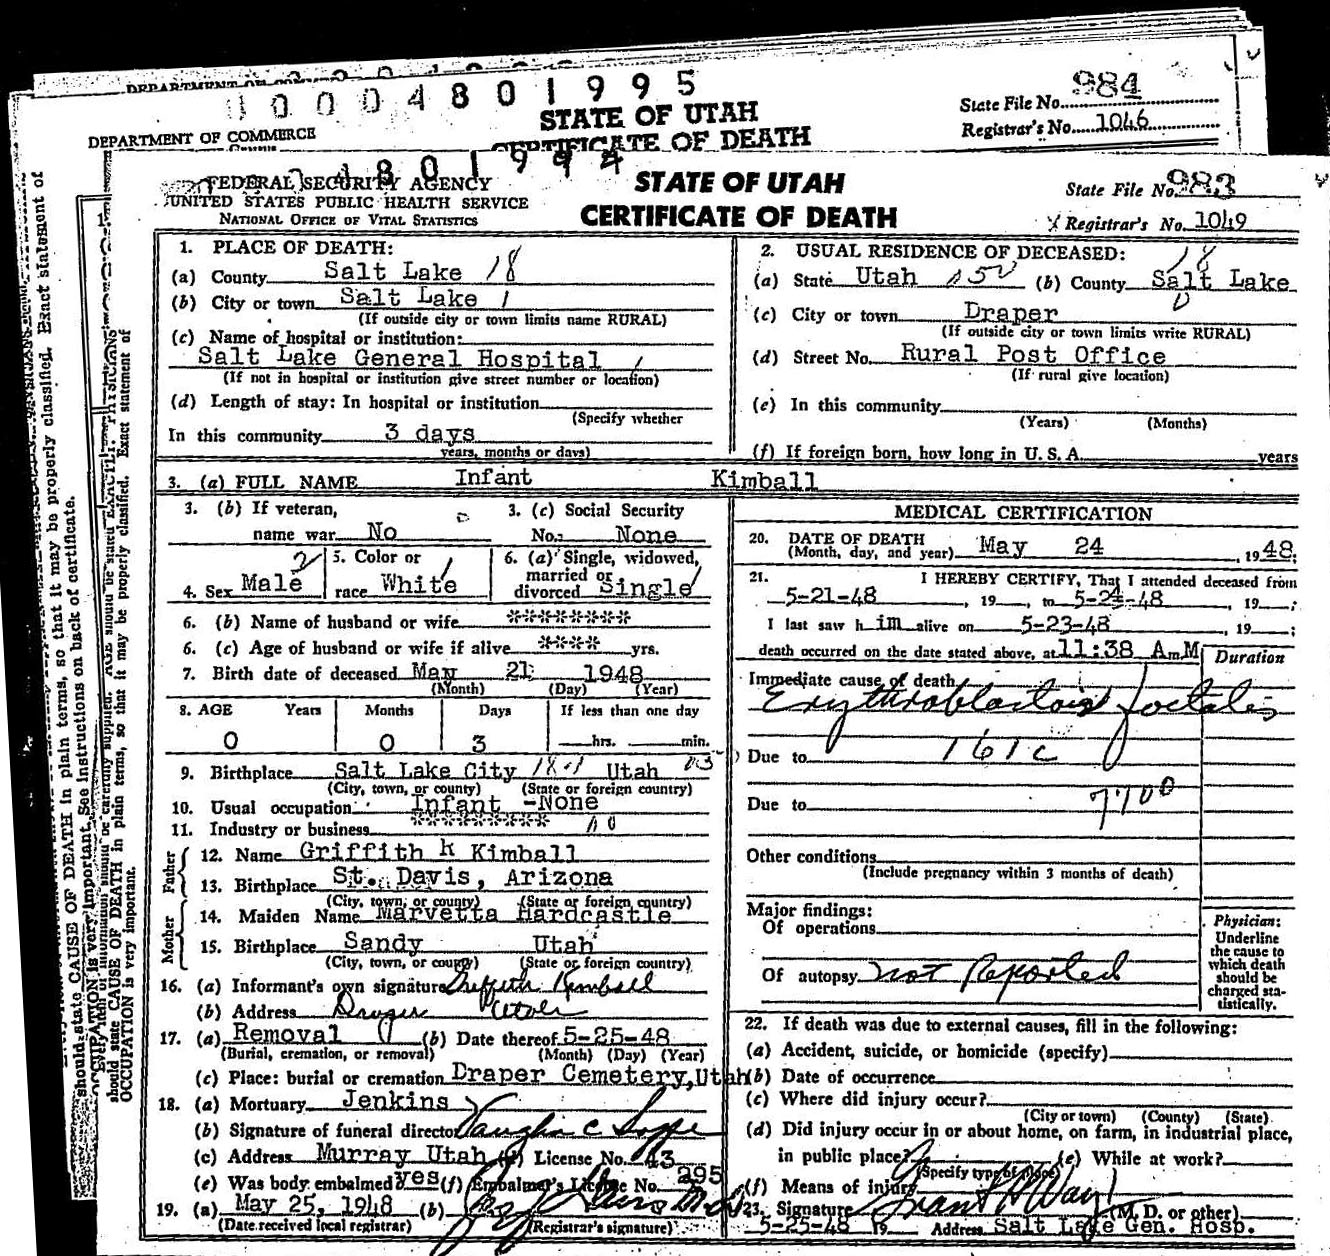 1 0 0 0 4 8 0 1 9 9 5
DEPARTMENT OF COMMERCE
STATE OF UTAH
CERTIFICATE OF DEATH
State File No. 984
Registrar's No. 1046
4 8 0 1 9 9 4
FEDERAL SECURITY AGENCY
UNITED STATES PUBLIC HEALTH SERVICE
NATIONAL OFFICE OF VITAL STATISTICS
STATE OF UTAH
CERTIFICATE OF DEATH
State File No. 983
Registrar's No. 1049
1. PLACE OF DEATH:
(a) County Salt Lake 18
(b) City or town Salt Lake 1
(If outside city or town limits name RURAL)
(c) Name of hospital or institution:
Salt Lake General Hospital
(If not in hospital or institution give street number or location)
(d) Length of stay: In hospital or institution
(Specify whether
In this community 3 days
years, months or days)
2. USUAL RESIDENCE OF DECEASED:
18
(a) State Utah (b) County Salt Lake
(c) City or town Draper
(If outside city or town limits write RURAL)
(d) Street No. Rural Post Office
(If rural give location)
(e) In this community
(Years) (Months)
(f) If foreign born, how long in U. S. A. years
3. (a) FULL NAME Infant Kimball
3. (b) If veteran,
name war No
3. (c) Social Security
No. None
4. Sex Male 2
5. Color or
race White
6. (a) Single, widowed,
married or
divorced Single
6. (b) Name of husband or wife ********
6. (c) Age of husband or wife if alive **** yrs.
7. Birth date of deceased May 21 1948
(Month) (Day) (Year)
8. AGE Years Months Days If less than one day
0 0 3 hrs. min.
9. Birthplace Salt Lake City Utah
(City, town, or county) (State or foreign country)
10. Usual occupation Infant -None
11. Industry or business *********
Father
12. Name Griffith K Kimball
13. Birthplace St. Davis, Arizona
(City, town, or county) (State or foreign country)
Mother
14. Maiden Name Marvetta Hardcastle
15. Birthplace Sandy Utah
(City, town, or county) (State or foreign country)
16. (a) Informant's own signature Griffith Kimball
(b) Address Draper Utah
17. (a) Removal (b) Date thereof 5-25-48
(Burial, cremation, or removal) (Month) (Day) (Year)
(c) Place: burial or cremation Draper Cemetery, Utah
18. (a) Mortuary Jenkins
(b) Signature of funeral director Vaughn C
(c) Address Murray Utah License No. 43
(e) Was body embalmed? Yes (f) Embalmer's License No. 295
19. (a) May 25, 1948 (b)
(Date received local registrar) (Registrar's signature)
MEDICAL CERTIFICATION
20. DATE OF DEATH
(Month, day, and year) May 24 , 1948;
21. I HEREBY CERTIFY, That I attended deceased from
5-21-48 , 19 , to 5-24-48 , 19 ;
I last saw h im alive on 5-23-48 , 19 ;
death occurred on the date stated above, at 11:38 A.m M
Duration
Immediate cause of death
Erythroblastosis foetalis
Due to 161c
Due to 7700
Other conditions
(Include pregnancy within 3 months of death)
Major findings:
Of operations
Of autopsy not Reported
Physician:
Underline
the cause to
which death
should be
charged sta-
tistically.
22. If death was due to external causes, fill in the following:
(a) Accident, suicide, or homicide (specify)
(b) Date of occurrence
(c) Where did injury occur?
(City or town) (County) (State)
(d) Did injury occur in or about home, on farm, in industrial place,
in public place? (e) While at work?
(Specify type of place)
(f) Means of injury
23. Signature Grant H Way (M. D. or other)
5-25-48 19 Address Salt Lake Gen. Hosp.
should state CAUSE OF DEATH in plain terms, so that it may be properly classified. Exact statement of
OCCUPATION is very important. See instructions on back of certificate.
should state CAUSE OF DEATH in plain terms, so that it may be properly classified. Exact statement of
OCCUPATION is very important.